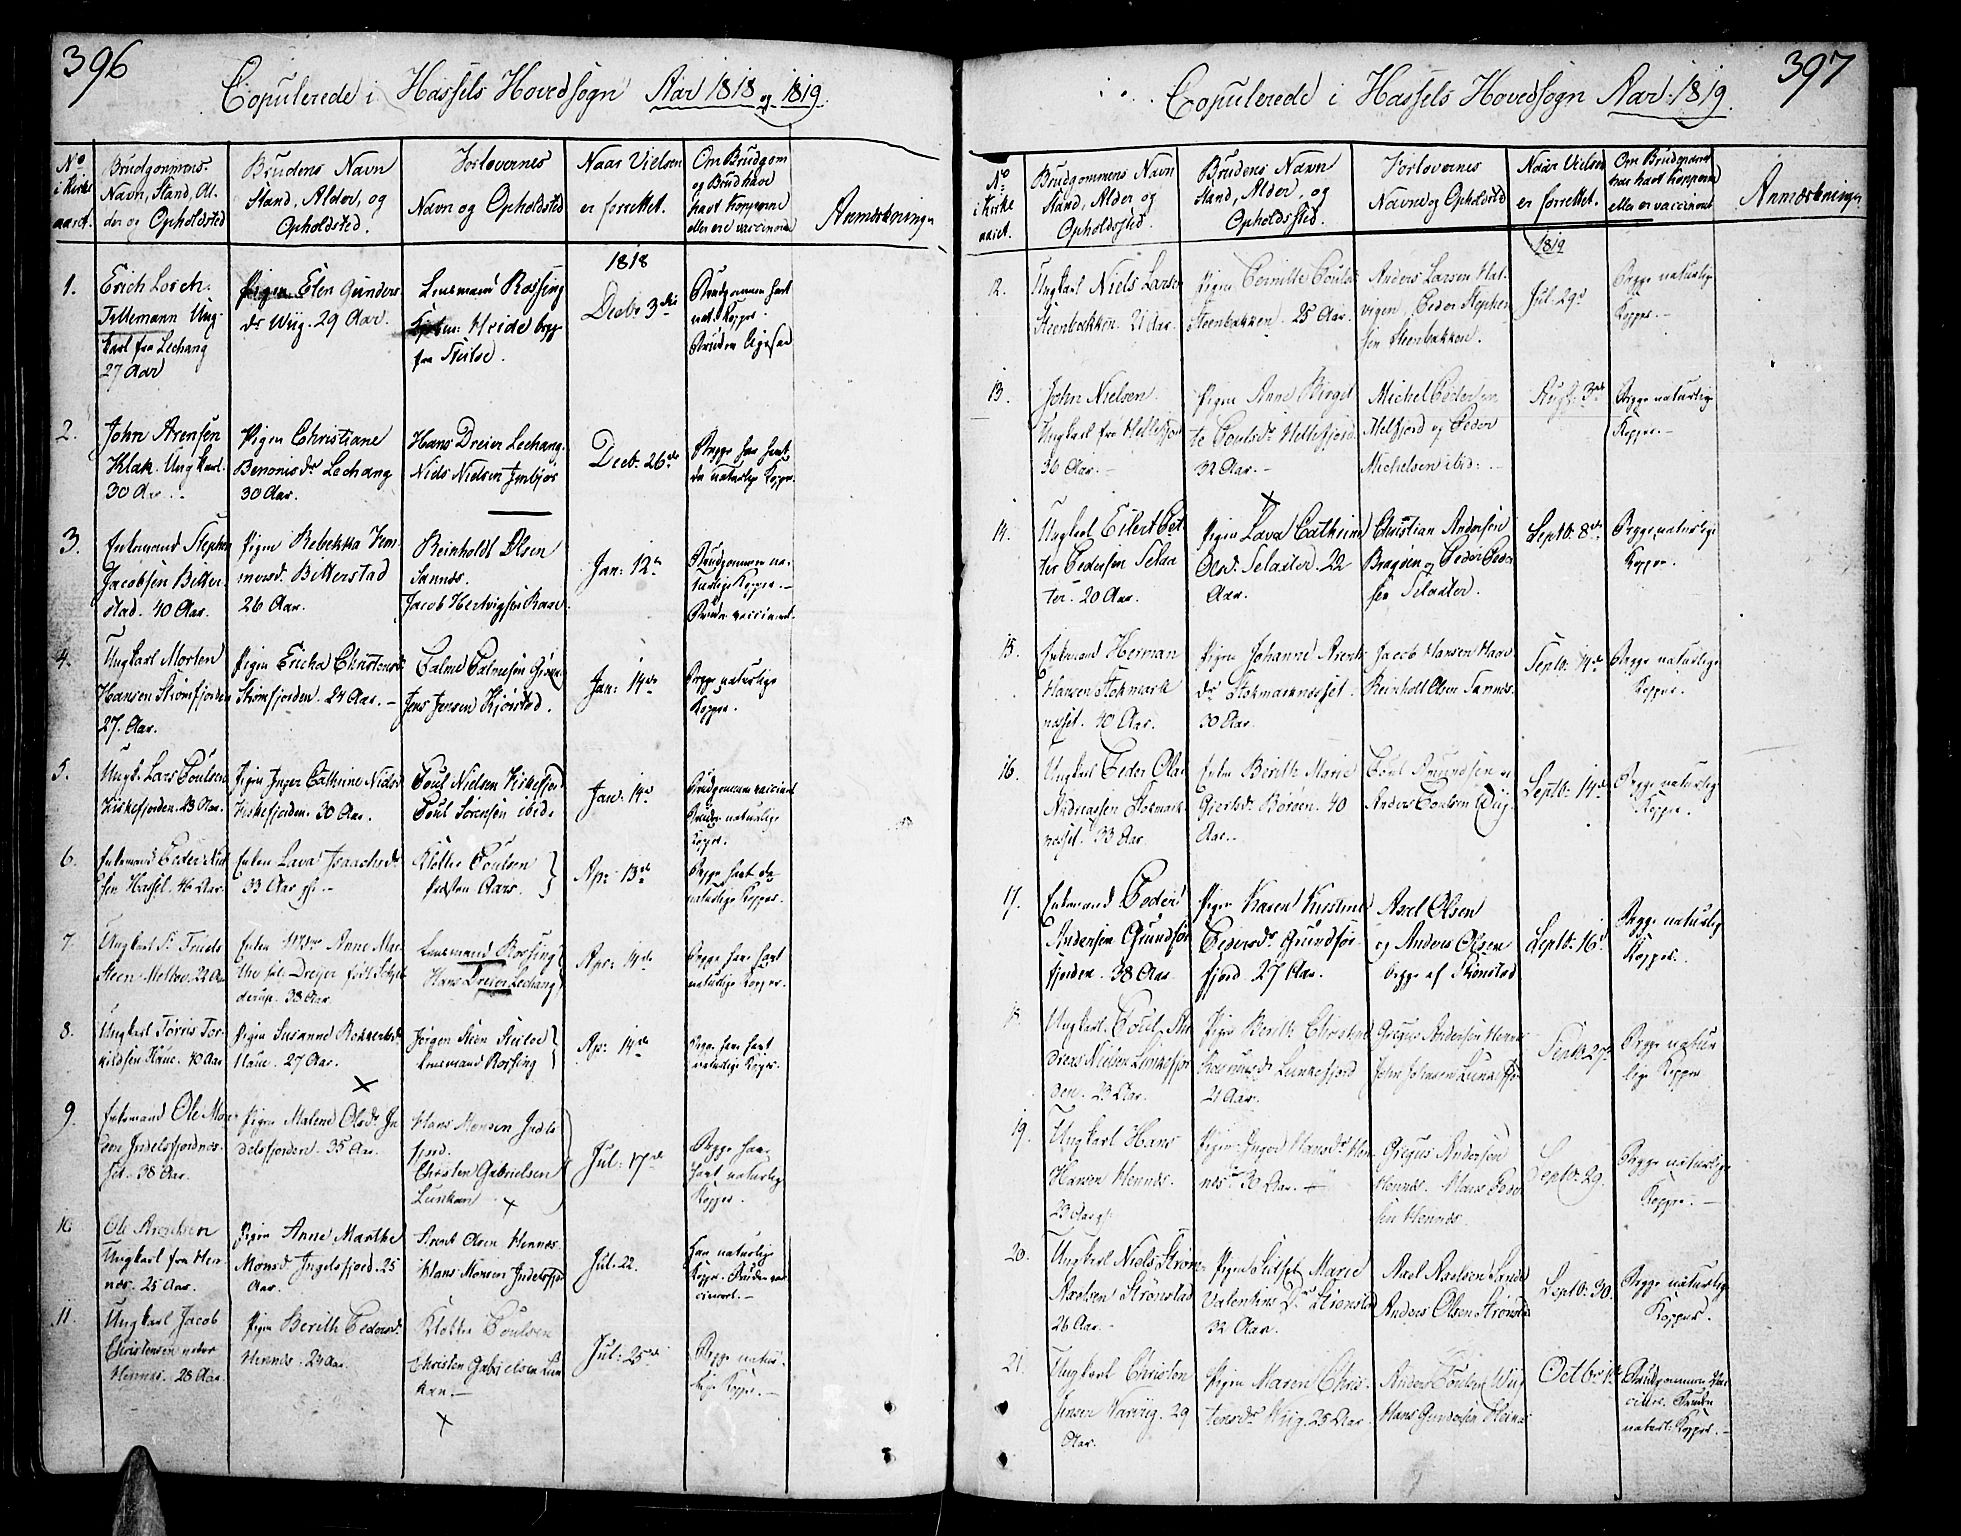 396
Copulerede i Hassels Hovedsogn Aar 1818 og 1819.
No i Kirke aaret.
Brudgommens Navn, Stand, Alder og Opholdsted
Brudens Navn Stand, Alder, og Opholdsted.
Forlovernes Navn og Opholdsted
Naar Vielsen er forrettet.
Om Brudgom og Brud have havt Kopperne eller ere vaccinerede
Anmærkninger
1818
1.
Erich Losch
Tyllemann Ung-
karl fra Lechang
27 Aar
Pigen Elen Gunders
dr Wiig. 29 Aar.
Lensmand Rossing
Heide begge
fra
Decbr 3die
Brudgommen havt
nat. Kopper.
Bruden ligesaa
2.
John Arensen
Klak. Ungkarl.
30 Aar.
Pigen Christiane
Benonisdr Lechang
30 Aar.
Hans Dreier Lechang.
Niels Nielsen
Decb. 26de
Begge har havt
de naturlige Kopper.
3.
Enkemand Stephen
Jacobsen Bitter-
stad. 40 Aar.
Pigen Rebekka
Bitterstad
26 Aar.
Reinholdt Olsen
Sannes.
Jacob Hertvigsen
Jan: 12te
Brudgommen na-
turlige Kopper.-
Bruden vaccineret.
4.
Ungkarl Morten
Hansen Strømfjorden
27. Aar.
Pigen Ericha Christensdr
Strømfjorden. 24 Aar.-
Jens Jensen Kjørstad.
Jan: 14de
Begge naturlige
Kopper.
5.
Ungk. Lars Poulsen
Kiskefjorden. 23 Aar.
Pigen Inger Cathrine Nielsd
Kiskefjorden. 30 Aar.
Poul Nielsen Kiskefjord
Poul Sørensen ibid.
Jan: 14de
Brudgommen vaccineret
Bruden naturlige
Kopper.
6.
Enkemand Peder Niel
sen Hassel. 46 Aar.
Enken Lava Isaachsdr
33 Aar gl.-
Klokker Poulsen
Præsten Aars.
Apr: 13de
Begge havt de
naturlige Kopper.
7.
Ungkarl
Steen Melboe.
Enken Anne Mar-
Dreyer
38 Aar.
Lensmand Rossing
Hans Dreier Lechang
Apr: 14de
Begge have havt
naturlige Kopper.
8.
Ungkarl Tørris Tor-
kildsen 40 Aar
Pigen Susanne
27 Aar.
Jørgen Steen
Lensmand Rossing
Ap: 14de
Begge have havt
naturlige Kopper.
9.
Enkemand Ole Mon-
sen Indelsfjordnes-
set. 38 Aar.
Pigen Malene Olsdr In-
delsfjorden. 35 Aar.
Hans Monsen Indels
fjord.
Christen Gabrielsen
Lunkan
Jul: 17de
Begge have
havt naturlige
Kopper.
10
Ole Arentsen
Ungkarl fra Hen-
nes. 25 Aar.
Pigen Anne Marthe
Monsd Ingelsfjord. 25
Aar.
Arent Olsen Hennes.
Hans Monsen Indelsfjor
Jul: 22.
Han naturlige
Kopper. Bruden vac
cineret.-
11.
Ungkarl Jacob
Christensen
Hennes. 28 Aar.
Pigen Berith Pedersdr
Hennes. 23 Aar.
Klokker Poulsen
Christen Gabrielsen Lun
kan.-
Jul: 25de
Begge natur-
lige Kopper.-
397
Copulerede i Hassels Hovedsogn Aar 1819.
No i Kirke aaret.
Brudgommens Navn Stand, Alder og Opholdssted.
Brudens Navn Stand, Alder, og Opholdsted.
Forlovernes Navne og Opholdsted
Naar Vielsen er forrettet.
Om Brudgommen har havt Kopperne eller er vaccineret
Anmærkninger
1819
12.
Ungkarl Niels Larsen
Steenbakken. 21 Aar.
Pigen Pernille Pouls
Steenbakken. 25 Aar.
Anders Larsen Hal-
vigen. Peder Stephen
sen Steenbakken.
Jul. 29de
Begge naturlige
Kopper.-
13.
John Nielsen.
Ungkarl fra Hellefjord
36 Aar.-
Pigen Anne Birgit
te Poulsdr Hellefjord.
32 Aar.-
Michel Pedersen
Melfjord og Peder
Michelsen ibid:-
Aug. 3de
Begge naturlige
Kopper.-
14.
Ungkarl Eilert Pet
ter Pedersen Selax
ter. 20 Aar.
Pigen Lava Cathrine
Olsd. Selaxter. 22
Aar.
Christian Andersen
Bragsen og Peder Peder
sen Selaxter.
Septb. 8de
Begge naturlige
Kopper.
15.
Enkemand Herman
Hansen Stokmark
nesset. 40 Aar.
Pigen Johanne Arent
dr Stokmarknesset.
30 Aar.
Jacob Hansen
Reinholt Olsen Sannes.
Septb. 14de
Begge naturlige
Kopper.
16.
Ungkarl Peder Olai
Andreassen Stokmark
nesset. 33 Aar.
Enken Berith Marie
Giertsdr Børøen. 40
Aar.
Poul Amundsen og
Anders Poulsen Wiig
Septb. 14de
Begge naturlige
Kopper.
17.
Enkemand Peder
Andersen Grundfør
fjorden. 38 Aar.
Pigen Karen Kirstine
Pedersdr Grundfør
fjord. 27 Aar.
Axel Olsen
og Anders Olsen
begge af Strønstad
Septb. 16de
Begge naturlige
Kopper.
18.
Ungkarl Poul An
dreas Nielsen Lunkefjor
den. 23 Aar.
Pigen Berith Christine
Rasmusdr Lunkefjord
21 Aar.
Gregus Andersen Hennes
John Johnsen Lunkefjor
Septb. 27de
Begge natur
lige Kopper
19.
Ungkarl Hans
Hansen Hennes.
23 Aar gl.
Pigen Inger Hansdr Hen
nes 30 Aar.
Gregus Andersen
Hennes. Hans Peder
sen Hennes.
Septb. 29.
Begge naturlige
Kopper.-
20.
Ungkarl Niels Strøm
Axelsen Strønstad
26 Aar.-
Pigen Sidsel Marie
Valentins Dr Strønstad
32 Aar.
Axel Axelsen
Anders Olsen Strønstad
Septb. 30.
Begge naturlige
Kopper.
21.
Ungkarl Christen
Jensen 29
Aar.
Pigen Maren Chris-
tensdr Wiig. 25 Aar.
Anders Poulsen Wiig
Hans Gundersen
Octbr 1ste
Brudgommen Vac
cineret. Bruden
naturl. Kopper.-